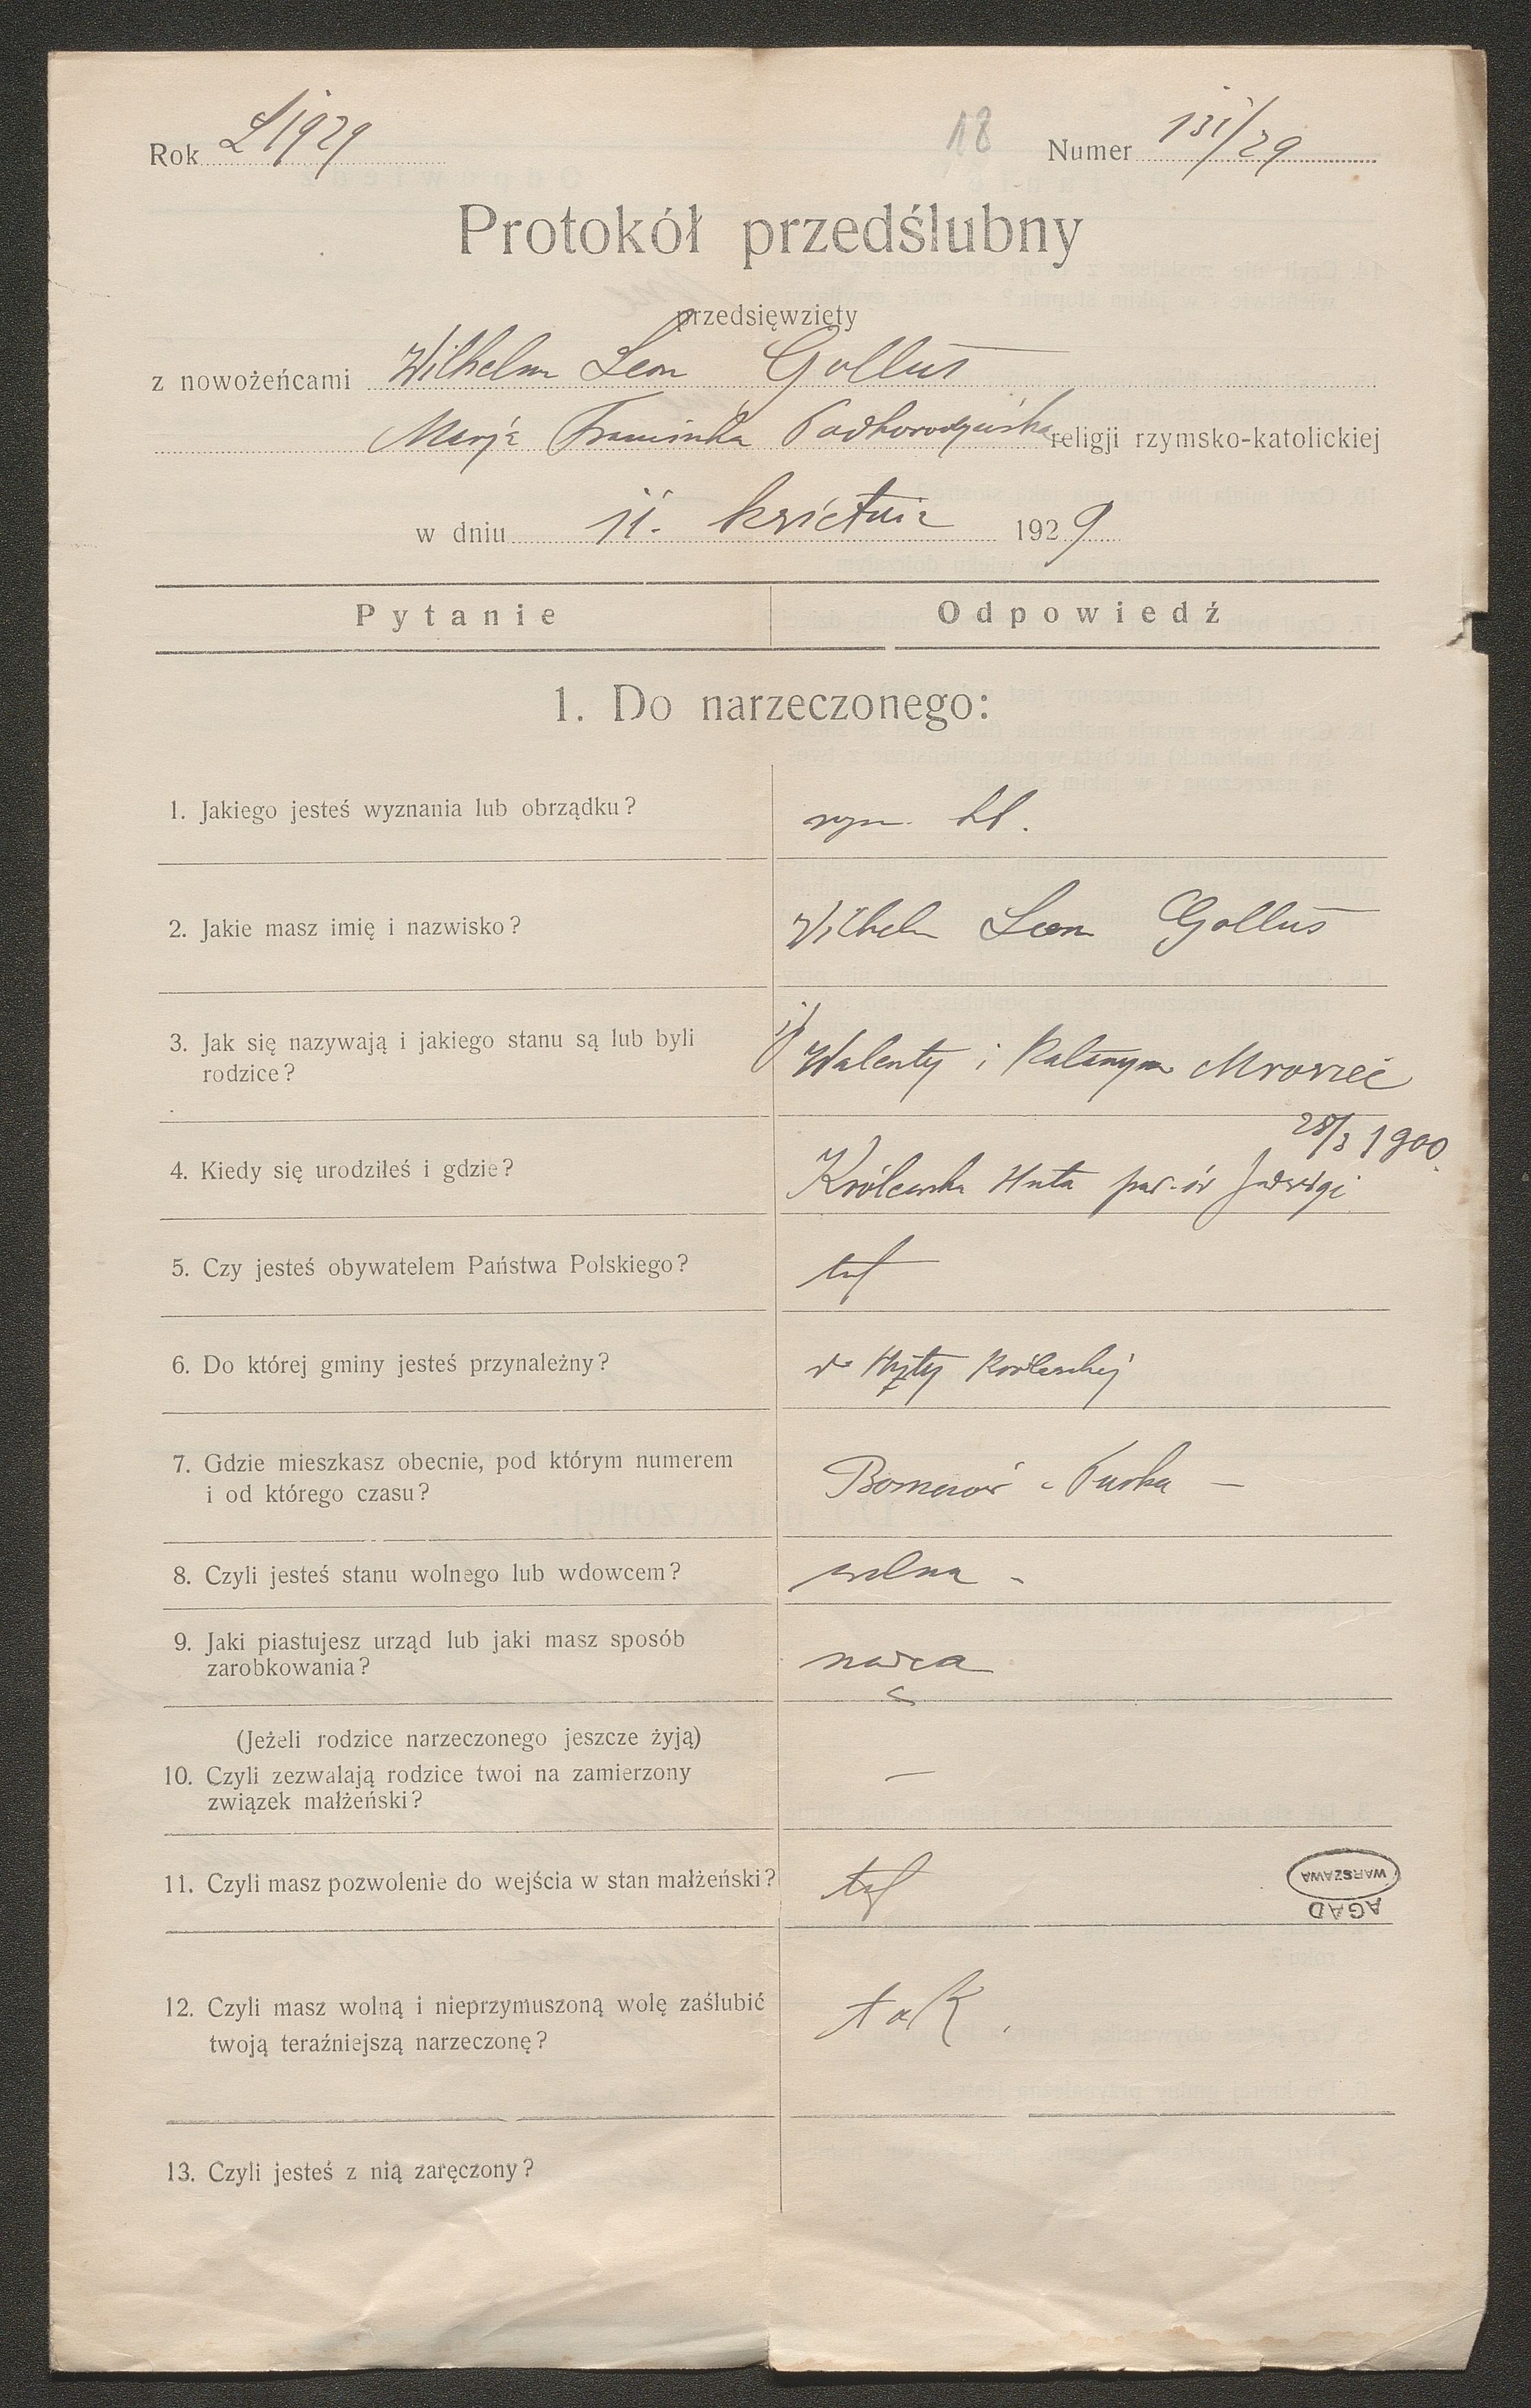 Rok 1929 18 Numer 131/29
Protokół przedślubny
przedsięwzięty
z nowożeńcami Wilhelm Leon Gollus
Marja Franciszka religji rzymsko-katolickiej
w dniu 11. kwietnia 1929
Pytanie Odpowiedź
1. Do narzeczonego:
1. Jakiego jesteś wyznania lub obrządku?
2. Jakie masz imię i nazwisko? Wilhelm Leon Gollus
3. Jak się nazywają i jakiego stanu są lub byli
rodzice? Walenty i Katarzyna Mrowiec
28/3 1900.
4. Kiedy się urodziłeś i gdzie? Królewska Huta par. św Jadwigi
5. Czy jesteś obywatelem Państwa Polskiego? tak
6. Do której gminy jesteś przynależny? do Huty Królewskiej
7. Gdzie mieszkasz obecnie, pod którym numerem
i od którego czasu?
8. Czyli jesteś stanu wolnego lub wdowcem? wolna -
9. Jaki piastujesz urząd lub jaki masz sposób
zarobkowania?
(Jeżeli rodzice narzeczonego jeszcze żyją)
10. Czyli zezwalają rodzice twoi na zamierzony —
związek małżeński?
11. Czyli masz pozwolenie do wejścia w stan małżeński? tak
WARSZAWA
AGAD
12. Czyli masz wolną i nieprzymuszoną wolę zaślubić tak.
twoją teraźniejszą narzeczonę?
13. Czyli jesteś z nią zaręczony?